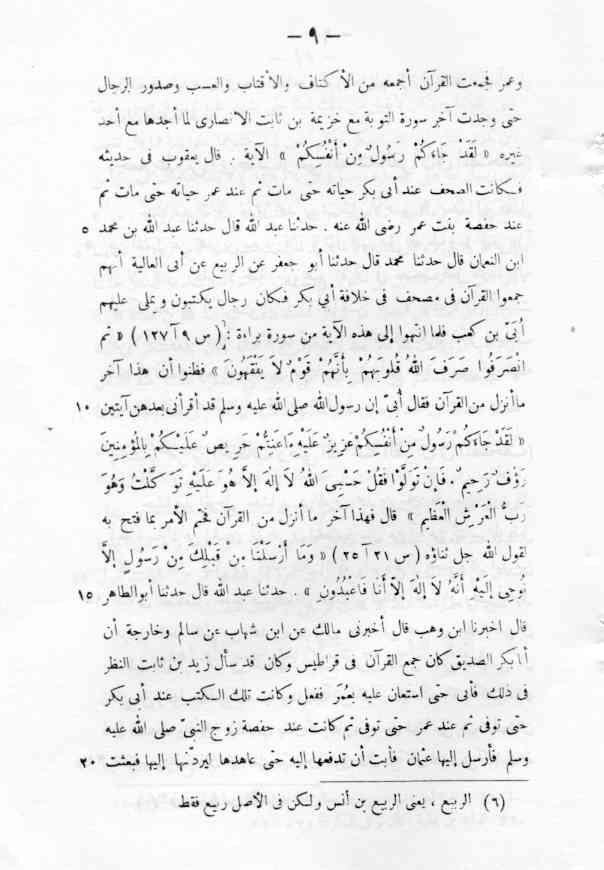 — ٩ —
وعمر فجمعت القرآن أجمعه من الأكتاف والأقتاب والعسب وصدور الرجال
حتى وجدت آخر سورة التوبة مع خزيمة بن ثابت الانصارى لما أجدها مع أحد
غيره « لَقَدْ جَاءَكُمْ رَسُولٌ مِنْ أَنْفُسِكُمْ » الآية . قال يعقوب فى حديثه
فكانت الصحف عند أبى بكر حياته حتى مات ثم عند عمر حياته حتى مات ثم
عند حفصة بفت عمر رضى الله عنه . حدثنا عبد الله قال حدثنا عبد الله بن محمد ٥
ابن النعمان قال حدثنا محمد قال حدثنا أبو جعفر عن الربيع عن أبى العالية أنهم
جمعوا القرآن فى مصحف فى خلافة أبي بكر فكان رجال يكتبون ويملى عليهم
أُبَىّ بن كعب فلما انتهوا إلى هذه الآية من سورة براءة :( س ٩ آ ١٢٧ ) « ثم
انْصَرَفُوا صَرَفَ اللهُ قُلُوبَهُمْ بِأَنَّهُمْ قَوْمٌ لاَ يَفْقَهُونَ » فظنوا أن هذا آخر
ما أنزل من القرآن فقال أُبىّ إن رسول الله صلى الله عليه وسلم قد أقرأنى بعدهن آيتين ١٠
« لَقَدْ جَاءَكُمْ رَسُولٌ مِنْ أَنْفُسِكُمْ عَزِيزٌ عَلَيْهِ مَا عَنِتُّمْ حَرِيصٌ عَلَيْكُمْ بِالْمُؤْمِنِينَ
رَؤُفٌ رَحِيمٌ . فَإِنْ تَوَلَّوْا فَقُلْ حَسْبِىَ اللهُ لاَ إِلهَ إِلاَّ هُوَ عَلَيْهِ تَوَكَّلْتُ وَهُوَ
رَبُّ الْعَرْشِ الْعَظِيمِ » قال فهذا آخر ما أنزل من القرآن فختم الأمر بما فتح به
لقول الله جل ثناؤه ( س ٢١ آ ٢٥ ) « وَمَا أَرْسَلْنَا مِنْ قَبْلِكَ مِنْ رَسُولٍ إِلاَّ
نُوحِى إِلَيْهِ أَنَّهُ لاَ إِلهَ إِلاَّ أَنَا فَاعْبُدُونِ » . حدثنا عبد الله قال حدثنا أبو الطاهر ١٥
قال اخبرنا ابن وهب قال أخبرنى مالك عن ابن شهاب عن سالم وخارجة أن
أبا بكر الصديق كان جمع القرآن فى قراطيس وكان قد سأل زيد بن ثابت النظر
فى ذلك فأبى حتى استعان عليه بعُمَر ففعل وكانت تلك الكتب عند أبى بكر
حتى توفى ثم عند عمر حتى توفى ثم كانت عند حفصة زوج النبىّ صلى الله عليه
وسلم فأرسل إليها عثمان فأبت أن تدفعها إليه حتى عاهدها ليردّنها إليها فبعثت ٢٠
(٦) الربيع ، يعنى الربيع بن أنس ولكن فى الأصل ربيع فقط